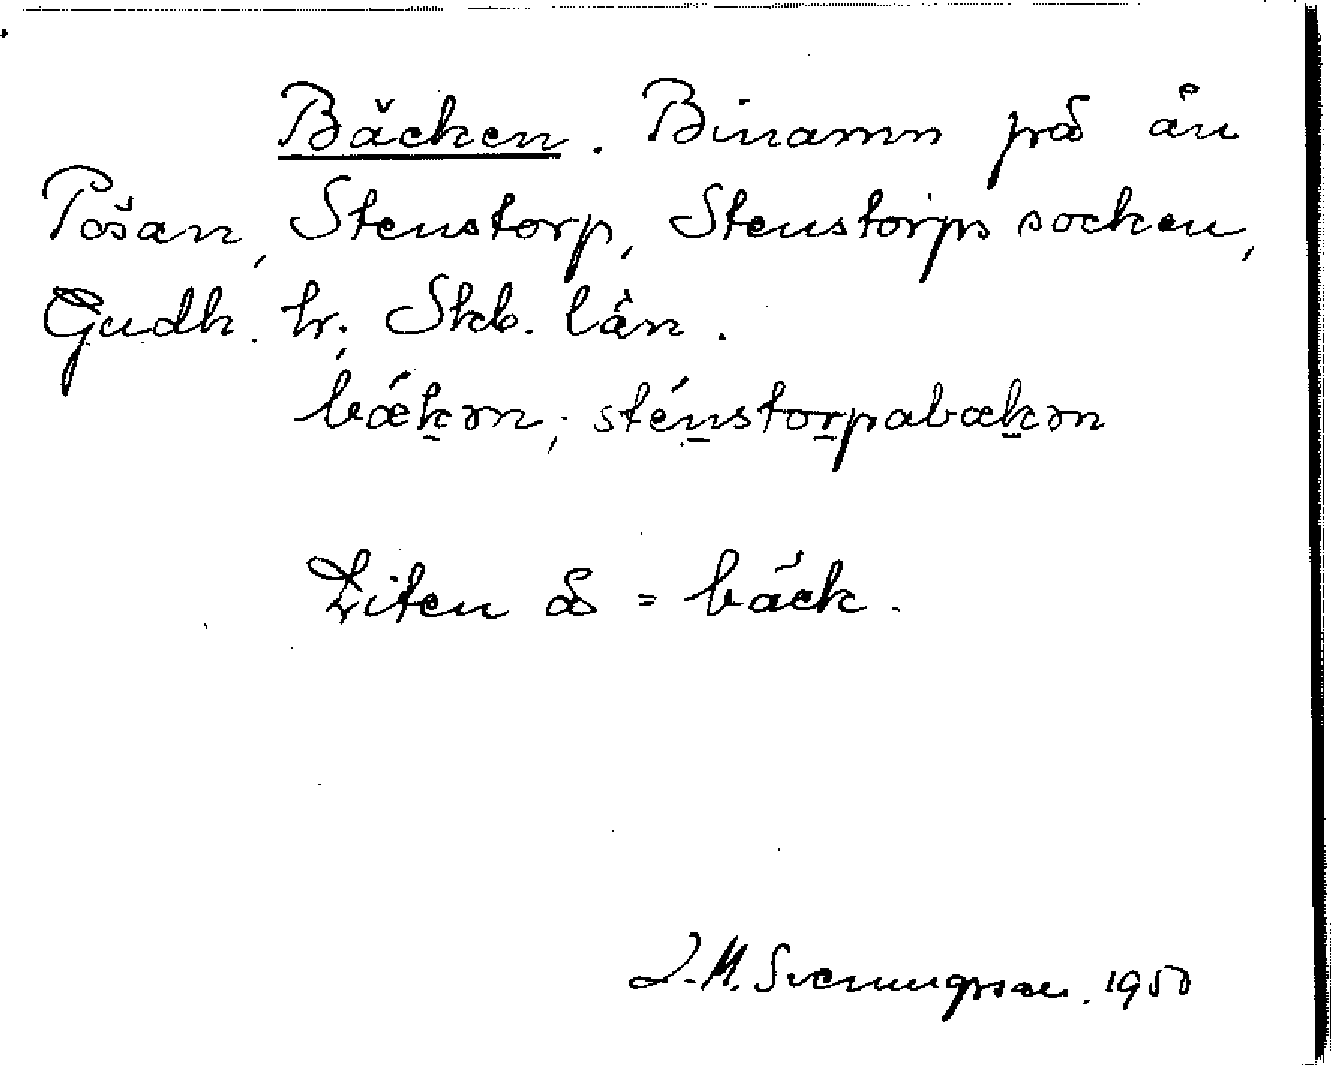 Bäcken. Binamn på ån
Pösan, Stenstorp, Stenstorps socken,
Gudh. hr; Skb. län.
bǽk̠ən; sténstorpabæk̠ən
Liten å = bäck.
J. M. Svenungsson. 1950